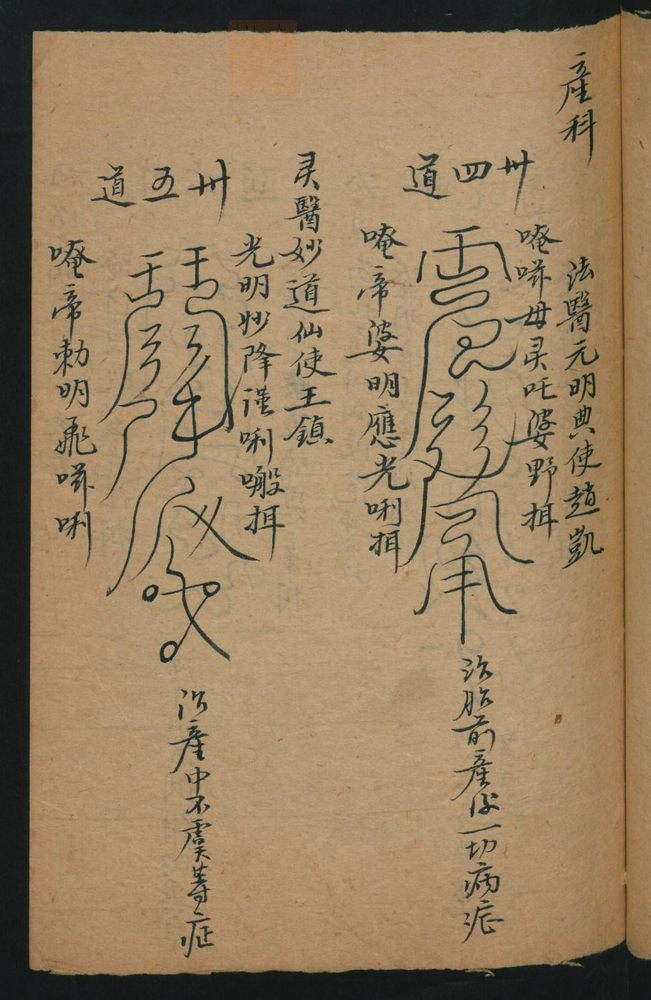 產科
卅四道
法醫元明典使趙凱
唵㘕毋灵吒婆野揖
唵帝婆明應光唎揖
治胎前產後一切病症
灵醫妙道仙使王鎮
卅五道
光明妙降謹唎㘕揖
唵帝勅明飛㘕唎
治產中不虞等症